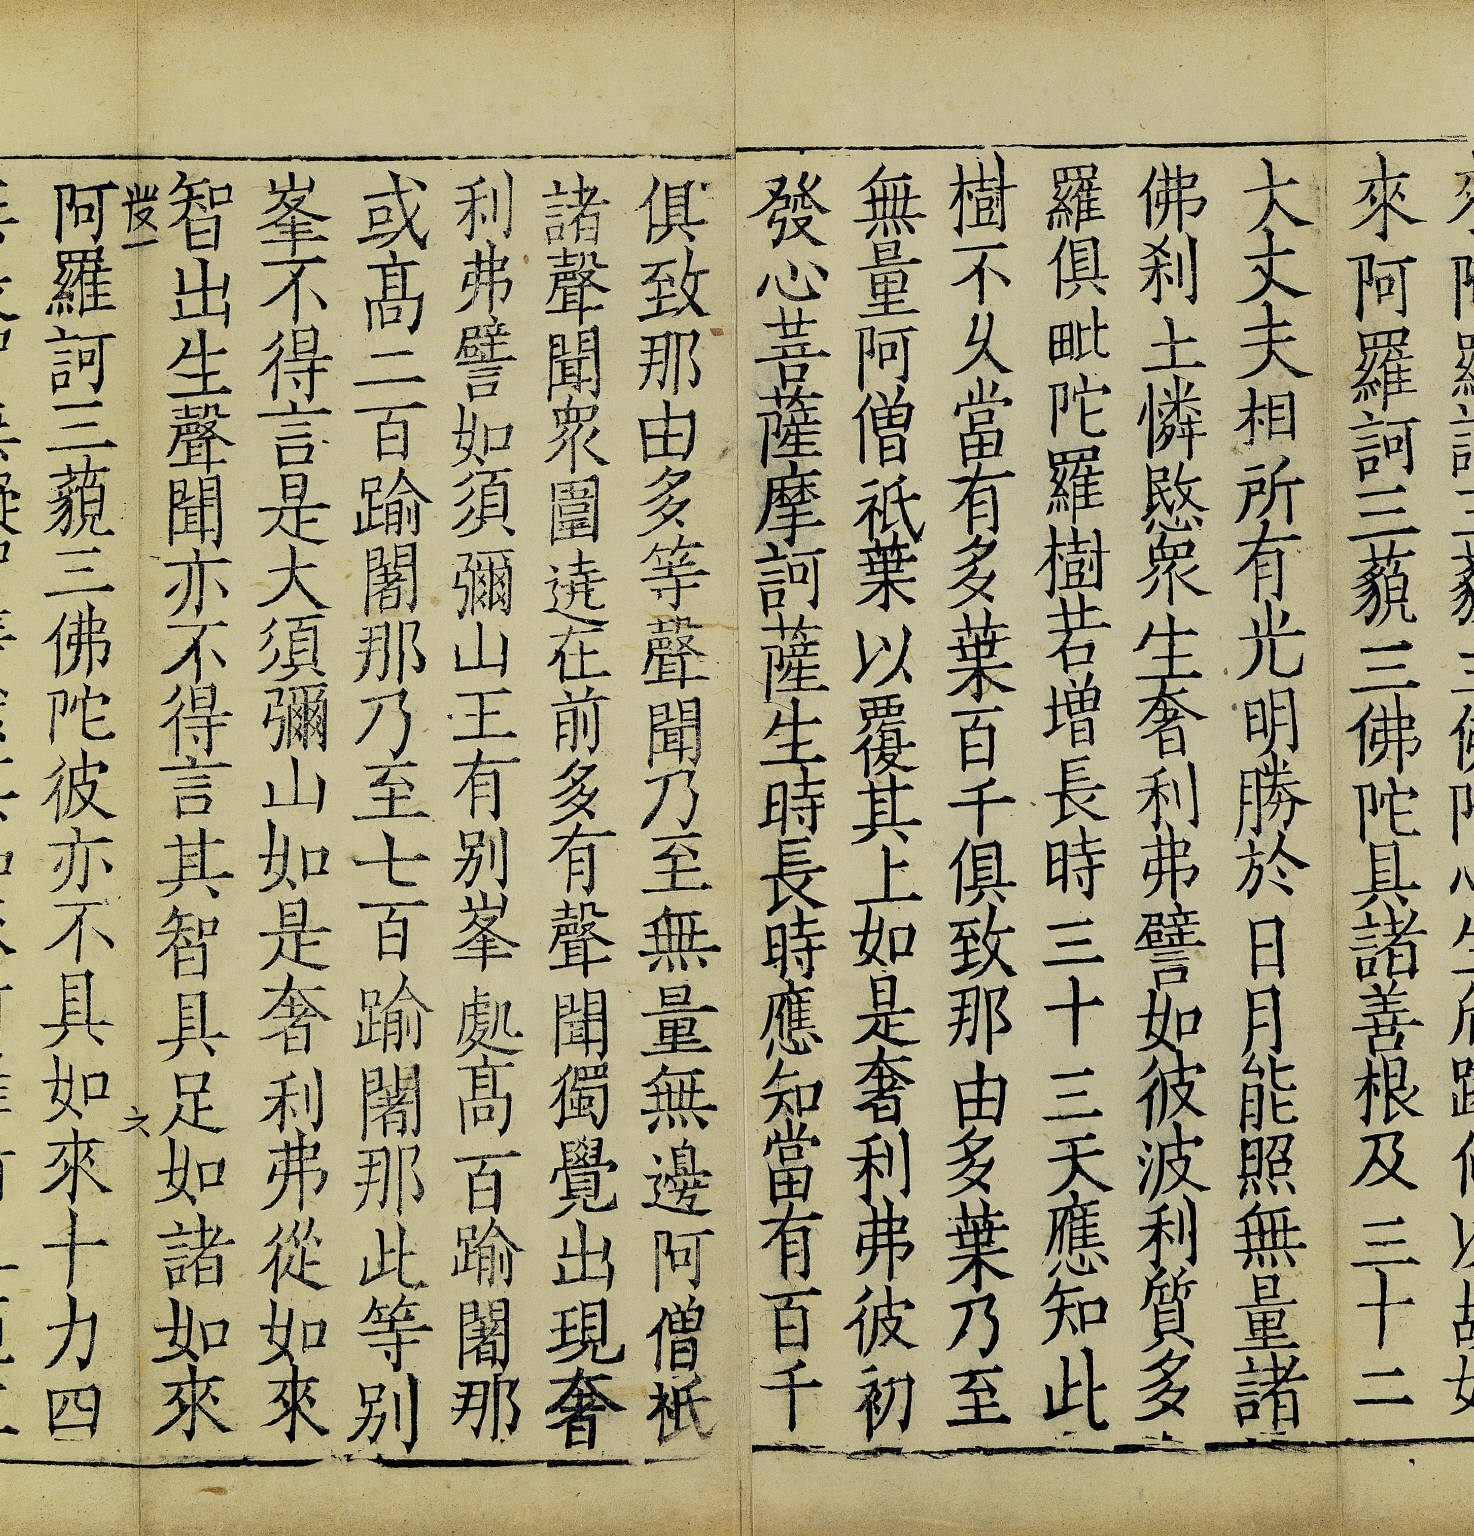 來阿羅訶三藐三佛陀具諸善根及三十二
大丈夫相所有光明勝於日月能照無量諸
佛刹土憐愍衆生奢利弗譬如彼波利質多
羅俱毗陀羅樹若增長時三十三天應知此
樹不乆當有多葉百千俱致那由多葉乃至
無量阿僧祇葉以覆其上如是奢利弗彼初
發心菩薩摩訶薩生時長時應知當有百千
俱致那由多等聲聞乃至無量無邊阿僧祇
諸聲聞衆圍遶在前多有聲聞獨覺出現奢
利弗譬如須彌山王有别峯處髙百踰闍那
或髙二百踰闍那乃至七百踰闍那此等别
峯不得言是大須彌山如是奢利弗從如來
智出生聲聞亦不得言其智具足如諸如來
六
阿羅訶三藐三佛陀彼亦不具如來十力四